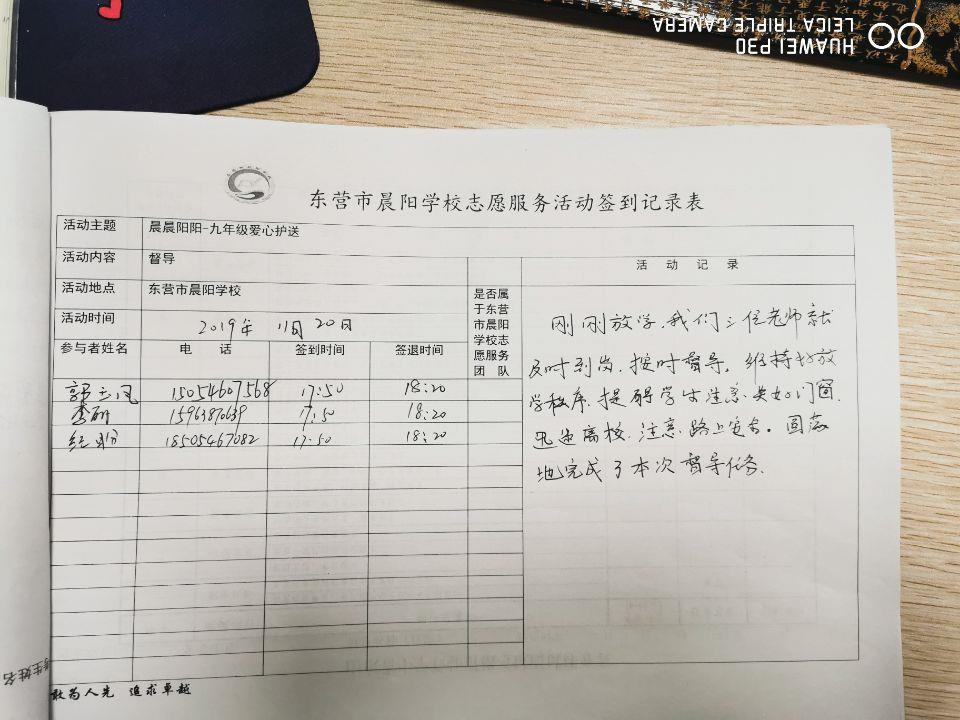 HUAWEI P30
LEICA TRIPLE CAMERA
东营市晨阳学校志愿服务活动签到记录表
活动主题 晨晨阳阳-九年级爱心护送
活动内容 督导
活动地点 东营市晨阳学校
活动时间 2019年 11月20日
参与者姓名 电 话 签到时间 签退时间
是否属
于东营
市晨阳
学校志
愿服务
团 队
活 动 记 录
15054607568 17:50 18:20
李研 15963870639 17:50 18:20
18505467082 17:50 18:20
刚刚放学,我们三位老师就
及时到岗,按时督导,维持好放
学秩序,提醒学生注意关好门窗,
迅速离校,注意路上安全。圆满
地完成了本次督导任务.
考生姓名
敢为人先 追求卓越